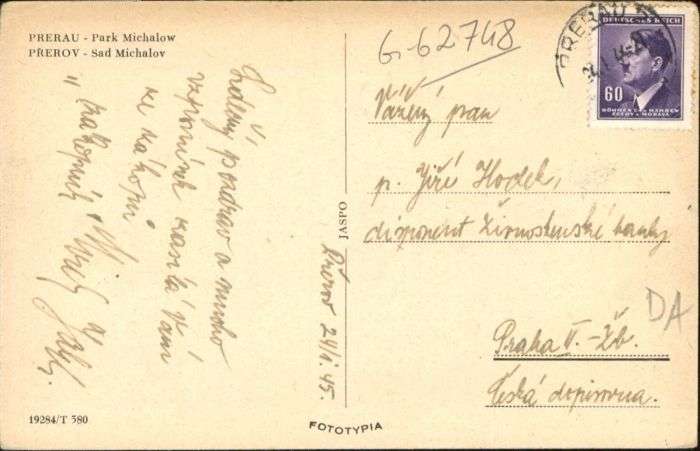 PRERAU - Park Michalow
PŘEROV - Sad Michalov
G-62748
PRERAU
DEUTSCHES REICH
60
BÖHMEN U. MÄHREN
ČECHY A MORAVA
Srdečný pozdrav a mnoho
vzpomínek zasílá Vám
ze
Přerov 24/1.45.
JASPO
Vážený pan
p. Jiří Hodek,
disponent Živnostenské banky
Praha II.-Žb.
Česká dopisovna.
DA
19284/T 380
FOTOTYPIA